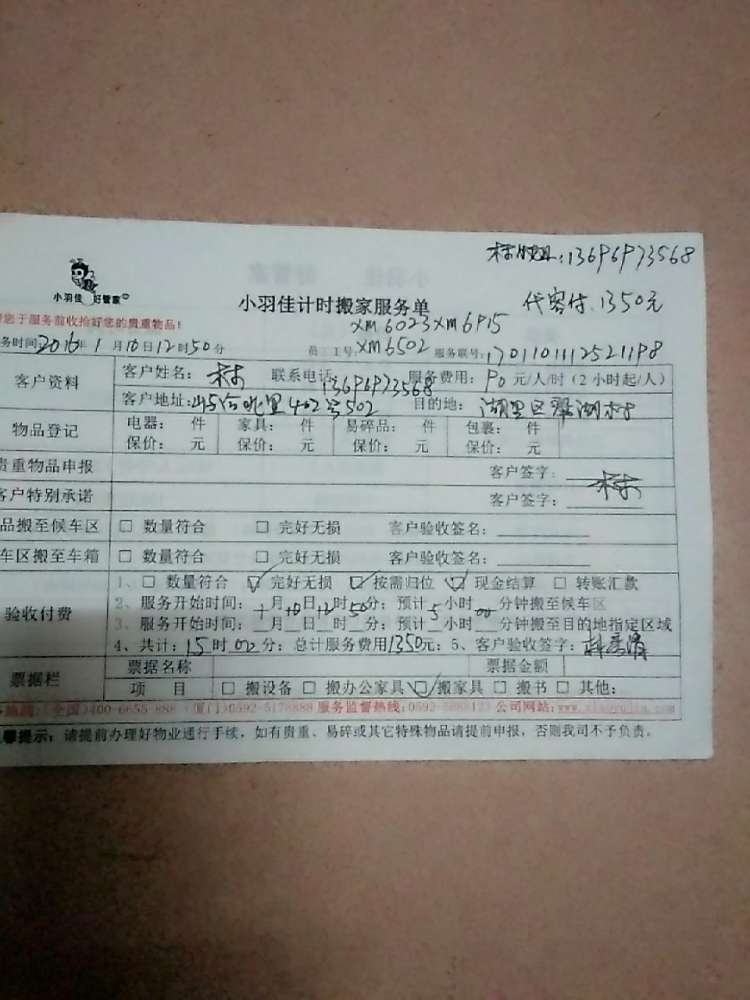 :13696973568
小羽佳 好管家
小羽佳计时搬家服务单
代客付:1350元
您于服务前收拾好您的贵重物品!
XM6023XM6915
务时间2016年1月10日12时50分 员工工号:XM6502 服务联号:1701101112521198
客户资料
客户姓名: 林 联系电话13696973568服务费用:90元/人/时(2小时起/人)
客户地址: 402号502 目的地: 湖里区
物品登记
电器: 件 家具: 件 易碎品: 件 包裹: 件
保价: 元 保价: 元 保价: 元 保价: 元
贵重物品申报 客户签字: 林
客户特别承诺 客户签字:
品搬至候车区 □ 数量符合 □ 完好无损 客户验收签名:
车区搬至车箱 □ 数量符合 □ 完好无损 客户验收签名:
验收付费
1、□ 数量符合 ☑ 完好无损 ☑ 按需归位 ☑ 现金结算 □ 转账汇款
2、服务开始时间:1月10日12时50分:预计5小时00分钟搬至候车区
3、服务开始时间: 月 日 时 分:预计 小时 分钟搬至目的地指定区域
4、共计:15时00分:总计服务费用1350元:5、客户验收签字:
票据栏
票据名称 票据金额
项 目 □ 搬设备 □ 搬办公家具 ☑ 搬家具 □ 搬书 □ 其他:
(全国)400-6655-888 (厦门)0592-5178888 服务监督热线: 公司网站:
馨提示:请提前办理好物业通行手续,如有贵重、易碎或其它特殊物品请提前申报,否则我司不予负责。